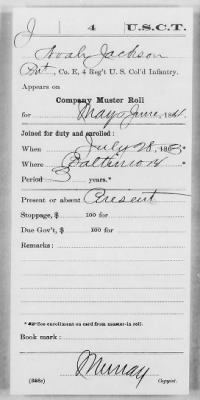 J 4 U.S.C.T.
Noah Jackson
Pvt, Co. E, 4 Reg't U. S. Col'd Infantry.
Appears on
Company Muster Roll
for May & June, 1864.
Joined for duty and enrolled:
When July 28, 1863*
Where Baltimore*
Period 3 years.*
Present or absent Present
Stoppage, $ 100 for
Due Gov't, $ 100 for
Remarks:
* See enrollment on card from muster-in roll.
Book mark:
Murray
(358c) Copyist.